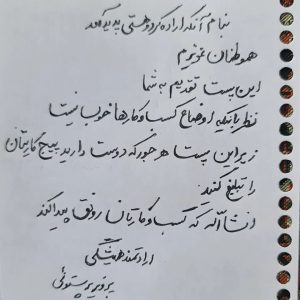 بنام آنکه اراده کرد و هستی پدید آمد
هموطنان عزیزم
این پست تقدیم به شما
نظر باینکه اوضاع کسب و کارها خوب نیست
زیر این پست هر جور که دوست دارید پیج کارتان
را تبلیغ کنید
انشاالله که کسب و کارتان رونق پیدا کند
ارادتمند همیشگی
پرویز پرستوئی